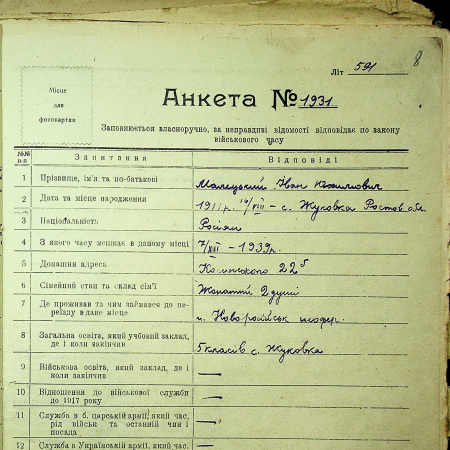 8
Літ 591
Місце
для
фотокартки
Анкета № 1931
Заповнюється власноручно, за неправдиві відомості відповідає по закону
військового часу
№№ п-п Запитання Відповіді
1 Прізвище, ім'я та по-батькові Іван
2 Дата та місце народження 1911р. 16/VIII – с. Жуковка Ростов обл.
3 Національність Росіян
4 З якого часу мешкає в даному місці 7/XII – 1939р.
5 Домашня адреса 22б
6 Сімейний стан та склад сім'ї Жонатий 2 душі
7 Де проживав та чим займався до пе-
реїзду в дане місце м. Новоросійськ шофер.
8 Загальна освіта, який учбовий заклад,
де і коли закінчив 5 класів с. Жуковка
9 Військова освіта, який заклад, де і
коли закінчив —
10 Відношення до військової служби
до 1917 року —
11 Служба в б. царській армії, який час,
рід військ та останній чин і
посада —
12 Служба в Українській армії, який час,